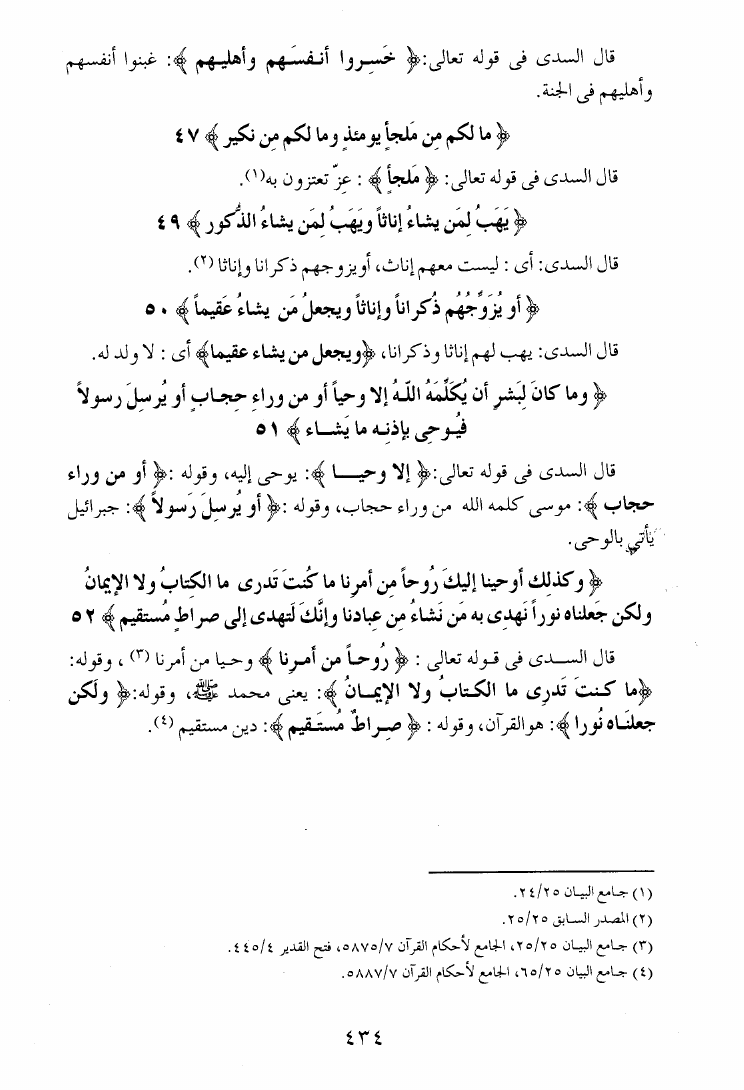 قال السدى فى قوله تعالى: ﴿ خَسِروا أنفسَهم وأهليهم ﴾: غبنوا أنفسهم
وأهليهم فى الجنة.
﴿ ما لكم مِن مَلجأٍ يومئذٍ وما لكم مِن نكير ﴾ ٤٧
قال السدى فى قوله تعالى: ﴿ مَلجأٍ ﴾ : عِزّ تعتزون به(١).
﴿ يَهَبُ لِمَن يشاءُ إناثاً ويَهَبُ لمَن يشاءُ الذُّكور ﴾ ٤٩
قال السدى: أى : ليست معهم إناث، أو يزوجهم ذكرانا وإناثا (٢).
﴿ أو يُزَوِّجُهُم ذُكراناً وإناثاً ويجعلُ مَن يشاءُ عَقيماً ﴾ ٥٠
قال السدى: يهب لهم إناثا وذكرانا، ﴿ويجعل من يشاء عقيما﴾ أى : لا ولد له.
﴿ وما كانَ لِبَشرٍ أن يُكَلِّمَهُ اللَّهُ إلا وحياً أو من وراءِ حِجابٍ أو يُرسِلَ رسولاً
فيُوحى بإذنِه ما يَشاء ﴾ ٥١
قال السدى فى قوله تعالى: ﴿ إلا وحيا ﴾: يوحى إليه، وقوله : ﴿ أو من وراء
حجاب ﴾: موسى كلمه الله من وراء حجاب، وقوله : ﴿ أو يُرسِلَ رَسولاً ﴾: جبرائيل
يأتي بالوحى.
﴿ وكذلك أوحينا إليكَ رُوحاً مِن أمرِنا ما كُنتَ تَدرى ما الكتابُ ولا الإيمانُ
ولكن جَعلناه نوراً نَهدِى به مَن نَشاءُ مِن عِبادنا وإنَّكَ لَتهدى إلى صراطٍ مُستقيم ﴾ ٥٢
قال السدى فى قوله تعالى : ﴿ رُوحاً من أمرِنا ﴾ وحيا من أمرنا (٣) ، وقوله:
﴿ما كنتَ تَدرِى ما الكتابُ ولا الإيمانُ ﴾: يعنى محمد ﷺ، وقوله: ﴿ ولَكن
جعلنَاه نُورا ﴾: هو القرآن، وقوله : ﴿ صِراطٌ مُستَقيم ﴾: دين مستقيم (٤).
(١) جامع البيان ٢٤/٢٥.
(٢) المصدر السابق ٢٥/٢٥.
(٣) جامع البيان ٢٥/٢٥، الجامع لأحكام القرآن ٥٨٧٥/٧، فتح القدير ٤٤٥/٤.
(٤) جامع البيان ٦٥/٢٥، الجامع لأحكام القرآن ٥٨٨٧/٧.
٤٣٤